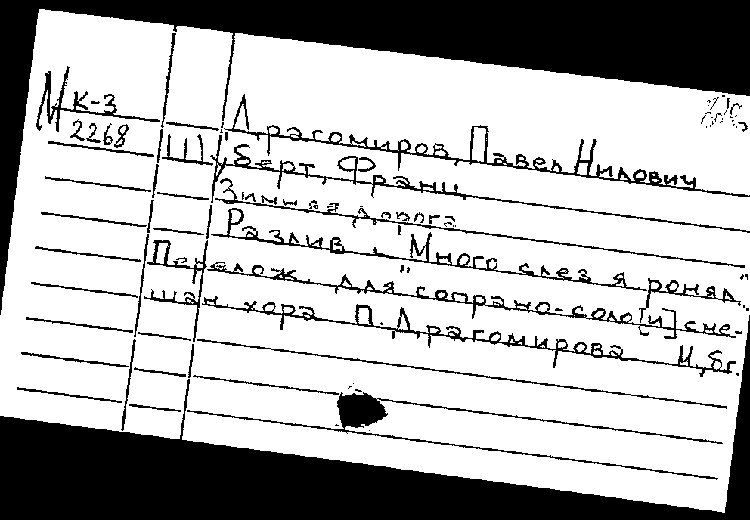 М К-3
2268
Драгомиров, Павел Нилович
Шуберт, Франц
Зимняя дорога
Разлив „Много слез я ронял"...
Перелож. для сопрано-соло [и] сме-
шан. хора П. Драгомирова. М., бг.